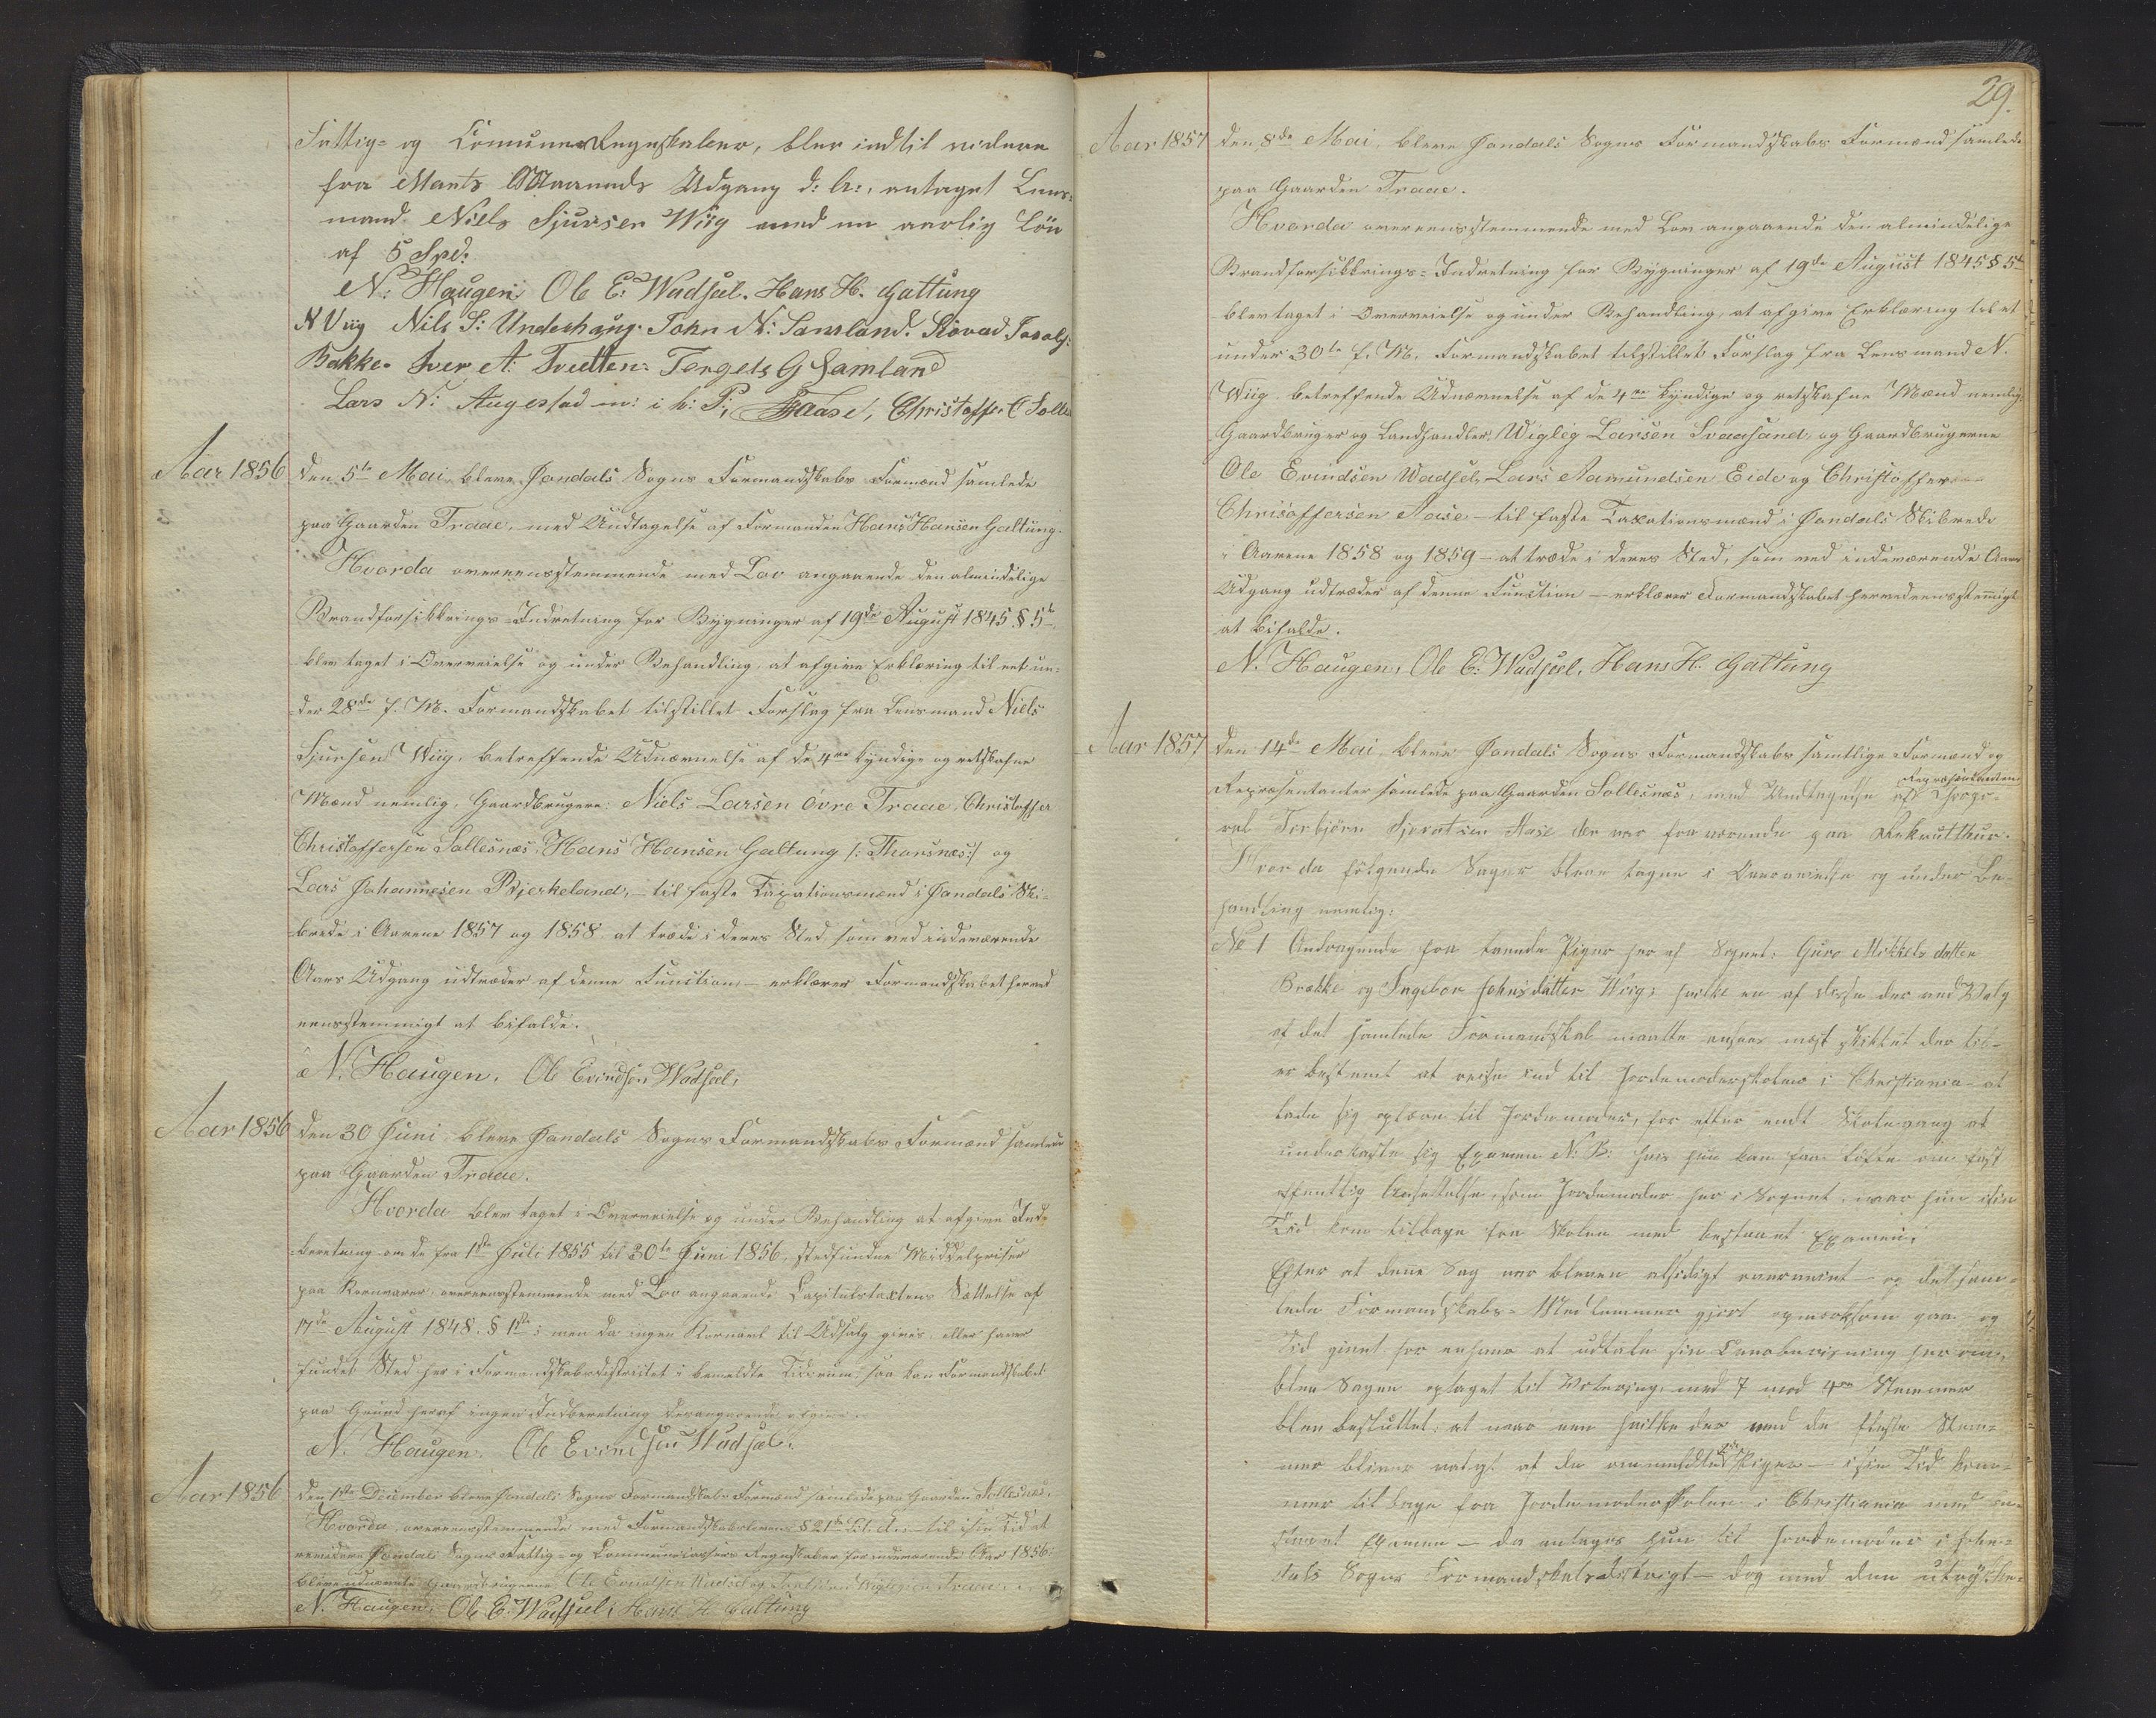 Fattig- og Comunes Regnskaber, blev indtil videre
fra Marts Maaneds Udgang d: A:, antaget Lens-
mand Niels Sjursen Wiig med en aarlig Lön
af 5 Spd:
N: Haugen Ole E: Wadsel. Hans H. Galtung
N Viig Nils S: Underhaug. John N: Samland.
Bakke. Iver A: Tveitten. Torgels G Samland
Lars N: Augestad m: i h: P: Aase, Christoffer C Solles
Aar 1856 den 5te Mai, bleve Jondals Sogns Formandskabs Formænd samlede
paa Gaarden Traae, med Undtagelse af Formanden Hans Hansen Galtung.
Hvorda overeensstemmende med Lov angaaende den almindelige
Brandforsikkrings-Indretning for Bygninger af 19de August 1845 § 5te
blev taget i Overveielse og under Behandling, at afgive Erklæring til eet un-
der 28de f. M. Formandskabet tilstillet Forslag fra Lensmand Niels
Sjursen Wiig, betreffende Udnævnelse af de 4re kyndige og retskafne
Mænd nemlig, Gaardbrugere: Niels Larsen övre Traae, Christoffer
Christoffersen Sollesnæs, Hans Hansen Galtung /: Thorsnæs:/ og
Lars Johannesen Bjerkeland, - til faste Taxationsmænd i Jondals Ski-
brede i Aarene 1857 og 1858 at træde i deres Sted, som ved indeværende
Aars Udgang udtræder af denne Function, - erklærer Formandskabet herved
eensstemmigt at bifalde.
N. Haugen. Ole Evindsen Wadsel.
Aar 1856 den 30 Juni bleve Jondals Sogns Formandskabs Formænd samlede
paa Gaarden Traae.
Hvorda blev taget i Overveielse og under Behandling at afgive Ind-
beretning om de fra 1ste Juli 1855 til 30te Juni 1856, stedfundne Middelpriser
paa Kornvarer, overeensstemmende med Lov angaaende Capitelstaxtens Sættelse af
17de August 1848. § 1ste; men da ingen Kornavl til Udsalg gives, eller haver
fundet Sted her i Formandskabsdistriktet i bemeldte Tidsrum, saa kan Formandskabet
paa Grund heraf ingen Indberetning desangaaende afgive.
N. Haugen. Ole Evindsen Wadsel.
Aar 1856 den 1ste December bleve Jondals Sogns Formandskabs Formænd samlede paa Gaarden Sollesnæs.
Hvorda, overeensstemmende med Formandskabsloven § 21de - til i sin Tid at
revidere Jondals Sogns Fattig- og Communecassers Regnskaber for indeværende Aar 1856:
bleve udnævnte Gaardbrugerne Ole Evindsen Wadsel og Traae.
N. Haugen. Ole E: Wadsel, Hans H Galtung
29.
Aar 1857 den 8de Mai, bleve Jondals Sogns Formandskabs Formænd samlede
paa Gaarden Traae.
Hvorda overeensstemmende med Lov angaaende den almindelige
Brandforsikkrings-Indretning for Bygninger af 19de August 1845 § 5te
blev taget i Overveielse og under Behandling at afgive Erklæring til et
under 30te f. M. Formandskabet tilstillet Forslag fra Lensmand N.
Wiig, betreffende Udnævnelse af de 4re kyndige og retskafne Mænd nemlig
Gaardbruger og Landhandler Wigleg Larsen Svaasand, og Gaardbrugerne
Ole Evindsen Wadsel, Lars Aamundsen Eide og Christoffer
Chrisoffersen Aase - til faste Taxationsmænd i Jondals Skibrede
i Aarene 1858 og 1859 - at træde i deres Sted, som ved indeværende Aars
Udgang udtræder af denne Function - erklærer Formandskabet herved eensstemigt
at bifalde.
N. Haugen, Ole E: Wadsel, Hans H. Galtung
Aar 1857 den 14de Mai bleve Jondals Sogns Formandskabs samtlige Formænd og
Repræsentanter samlede paa Gaarden Sollesnæs, med Undtagelse af Repræsentanten
Torbjörn Aase der var fraværende paa
Hvor da fölgende Sager bleve tagne i Overveielse og under Be-
handling nemlig:
No 1 Andragende fra tvende Piger her af Sognet: Guro Mikkels datter
Brække og Ingebor Johnsdatter Wiig, hvilke en af disse der ved Valg
af det samlede Formandskab maatte ansees mest skikket der til -
er bestemt at reise ind til Jordemoderskolen i Christiania - at
lade sig oplære til Jordemoder, for efter endt Skolegang at
underkaste sig Examen N: B: hvis hun kan faa löfte om fast
offentlig Ansættelse, som Jordemoder her i Sognet, naar hun i sin
Tid kom tilbage fra Skolen med bestaaet Examen.
Efter at denne Sag var bleven alsidigt overveiet - og det sam-
lede Formandskabs-Medlemmer gjort opmærksom paa, og
Tid givet for enhver at udtale sin Overbeviisning her om,
blev Sagen optaget til Votering, med 7 mod 4re Stemmer
blev besluttet: at naar een hvilke der med de fleste Stem-
mer bliver valgt af de ommeldte 2de Piger - i sin Tid kom-
mer tilbage fra Jordemoderskolen i Christiania med be-
staaet Examen - da antages hun til Jordemoder i Jon-
dals Sogns Formandskabsdistrigt - dog med den utrykke-